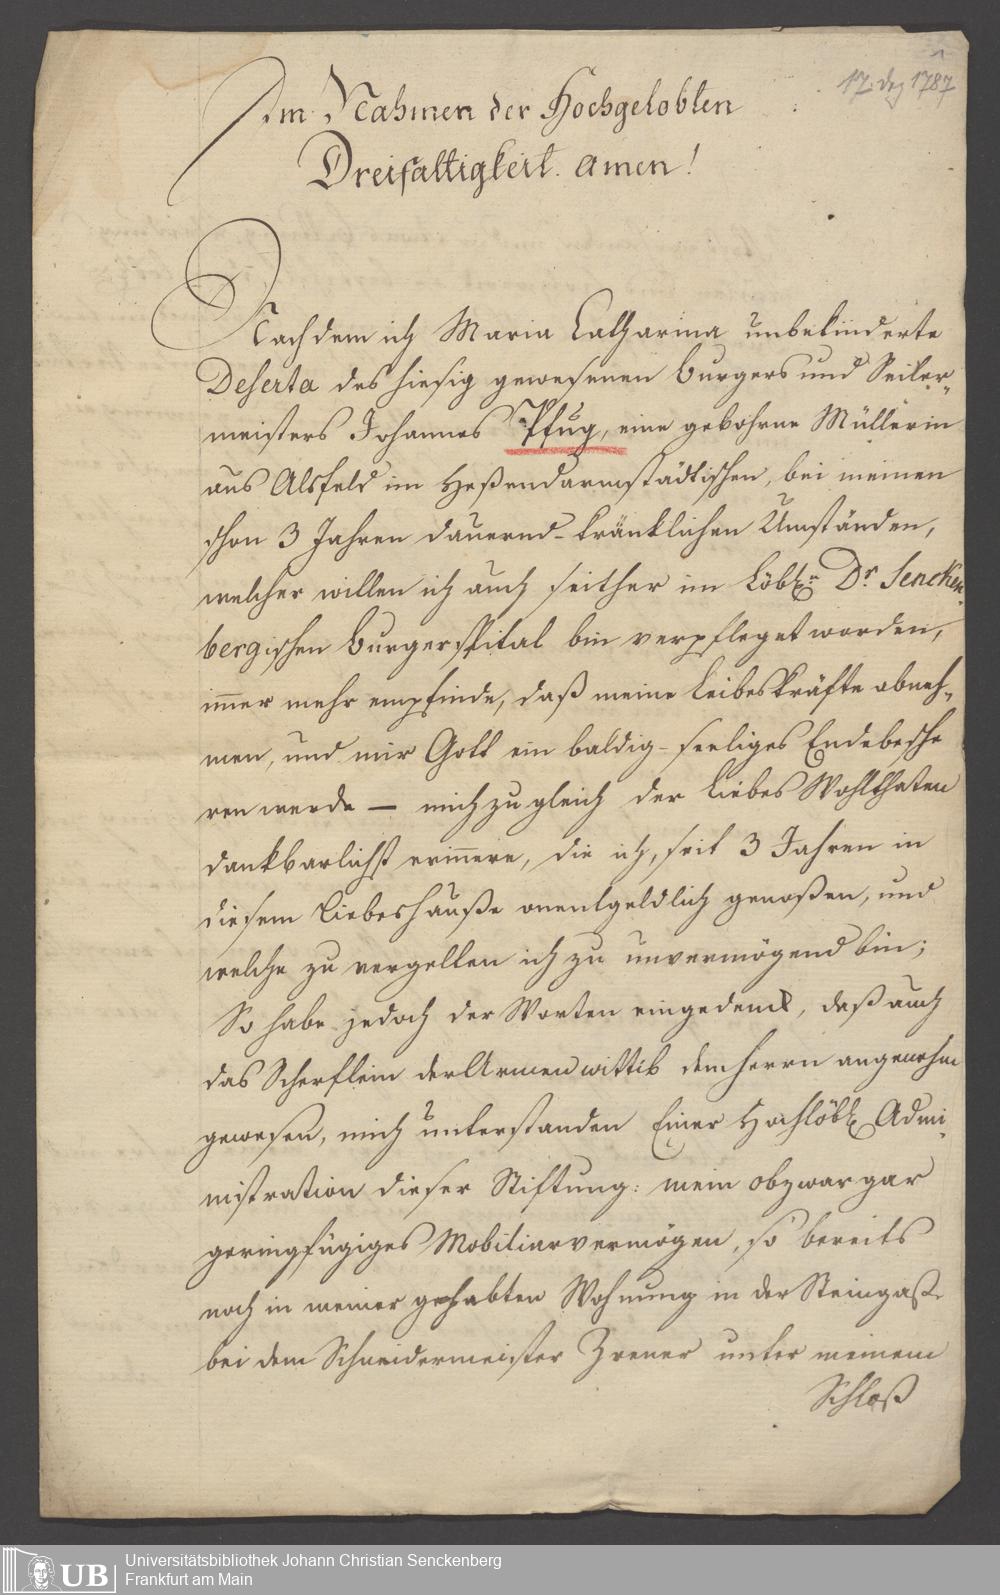 17. Dez 1787
Im Nahmen der Hochgelobten
Dreifaltigkeit. Amen!
Nachdem ich Maria Catharina unbekinderte
Deserta des hiesig gewesenen Burgers und Seiler„
meisters Johannes Pflug, eine gebohrne Müllerin
aus Alsfeld im Heßendarmstädtischen, bei meinen
schon 3 Jahren daurend-kränklichen Umständen,
welcher willen ich auch seither im Löbl. Dr. Sencken„
bergischen Burgerspital bin verpfleget worden,
im̄er mehr empfinde, daß meine Leibeskräfte abneh„
men, und mir Gott ein baldig-seeliges Ende besche
ren werde — mich zugleich der Liebes Wohlthaten
dankbarlichst erin̄ere, die ich, seit 3 Jahren in
diesem Liebeshauße onentgeldlich genoßen, und
welche zu vergelten ich zu unvermögend bin;
So habe jedoch der Worten eingedenck, daß auch
das Scherflein der Armen wittib dem Herrn angenehm
gewesen, mich unterstanden Einer Hochlöbl. Admi„
nistration dieser Stiftung: mein obzwar gar
geringfügiges Mobiliarvermögen, so bereits
noch in meiner gehabten Wohnung in der Steingaß
bei dem Schneidermeister Zrener unter meinem
Schloß
UB
Universitätsbibliothek Johann Christian Senckenberg
Frankfurt am Main